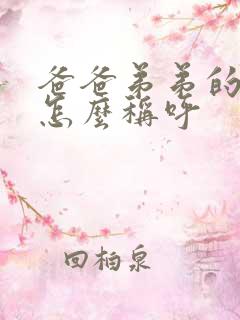 爸爸弟弟的
怎麼稱呼
回柏泉